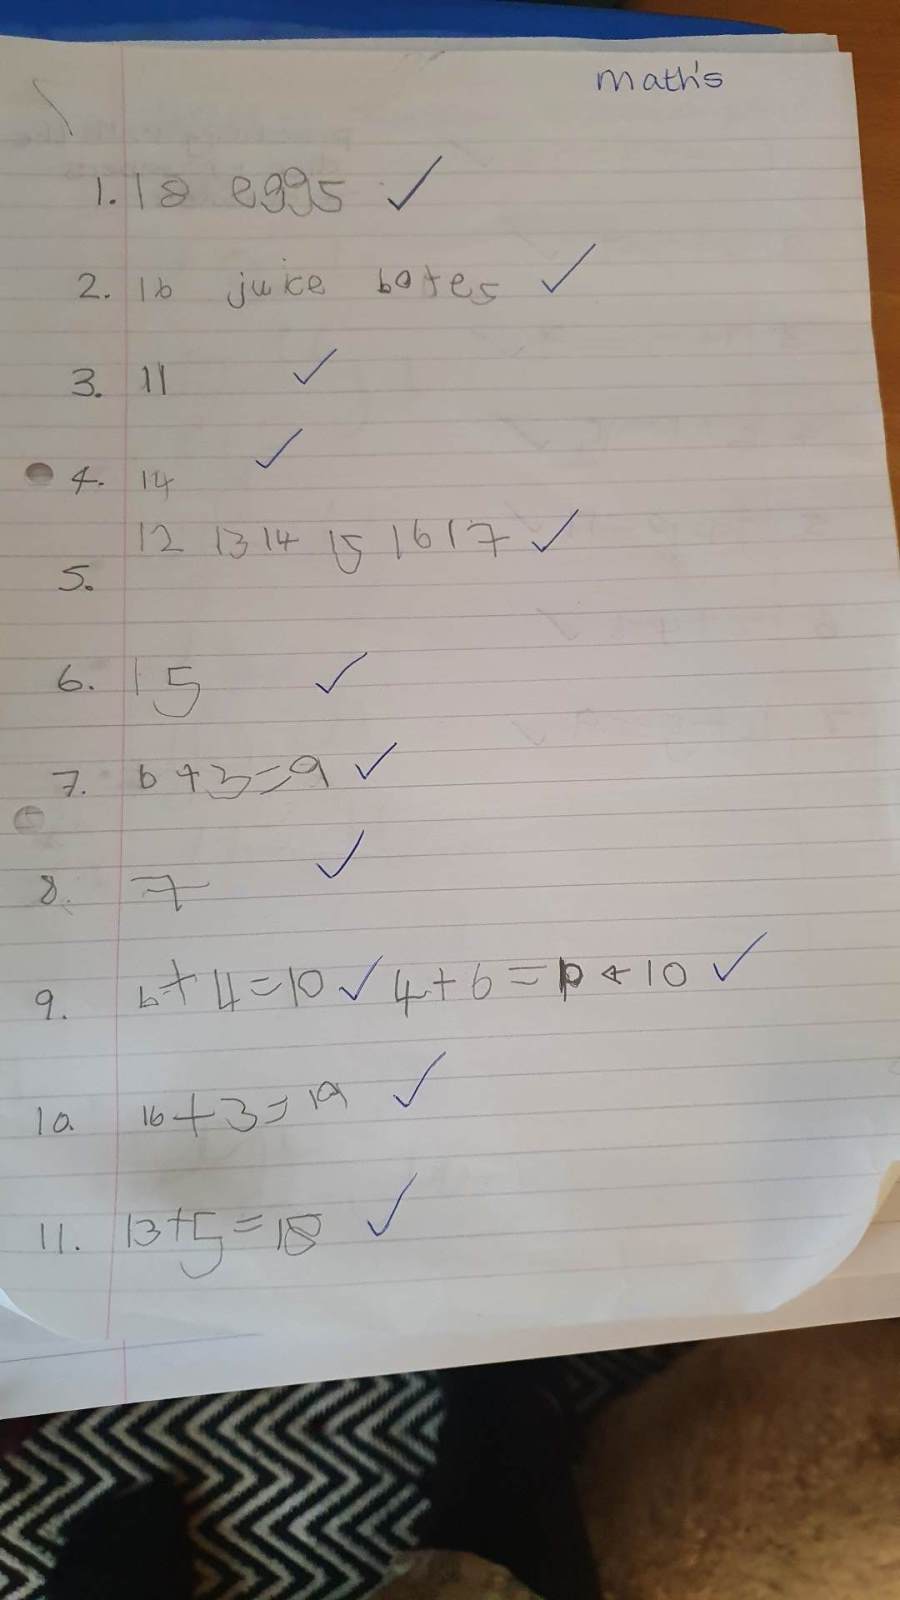 Math's
1. 18 eggs ✓
2. 16 juice botes ✓
3. 11 ✓
4. 14 ✓
12 13 14 15 16 17 ✓
5.
6. 15 ✓
7. 6 + 3 = 9 ✓
8. 7 ✓
9. 6 + 4 = 10 ✓ 4 + 6 = 10 ✓
10. 16 + 3 = 19 ✓
11. 13 + 5 = 18 ✓